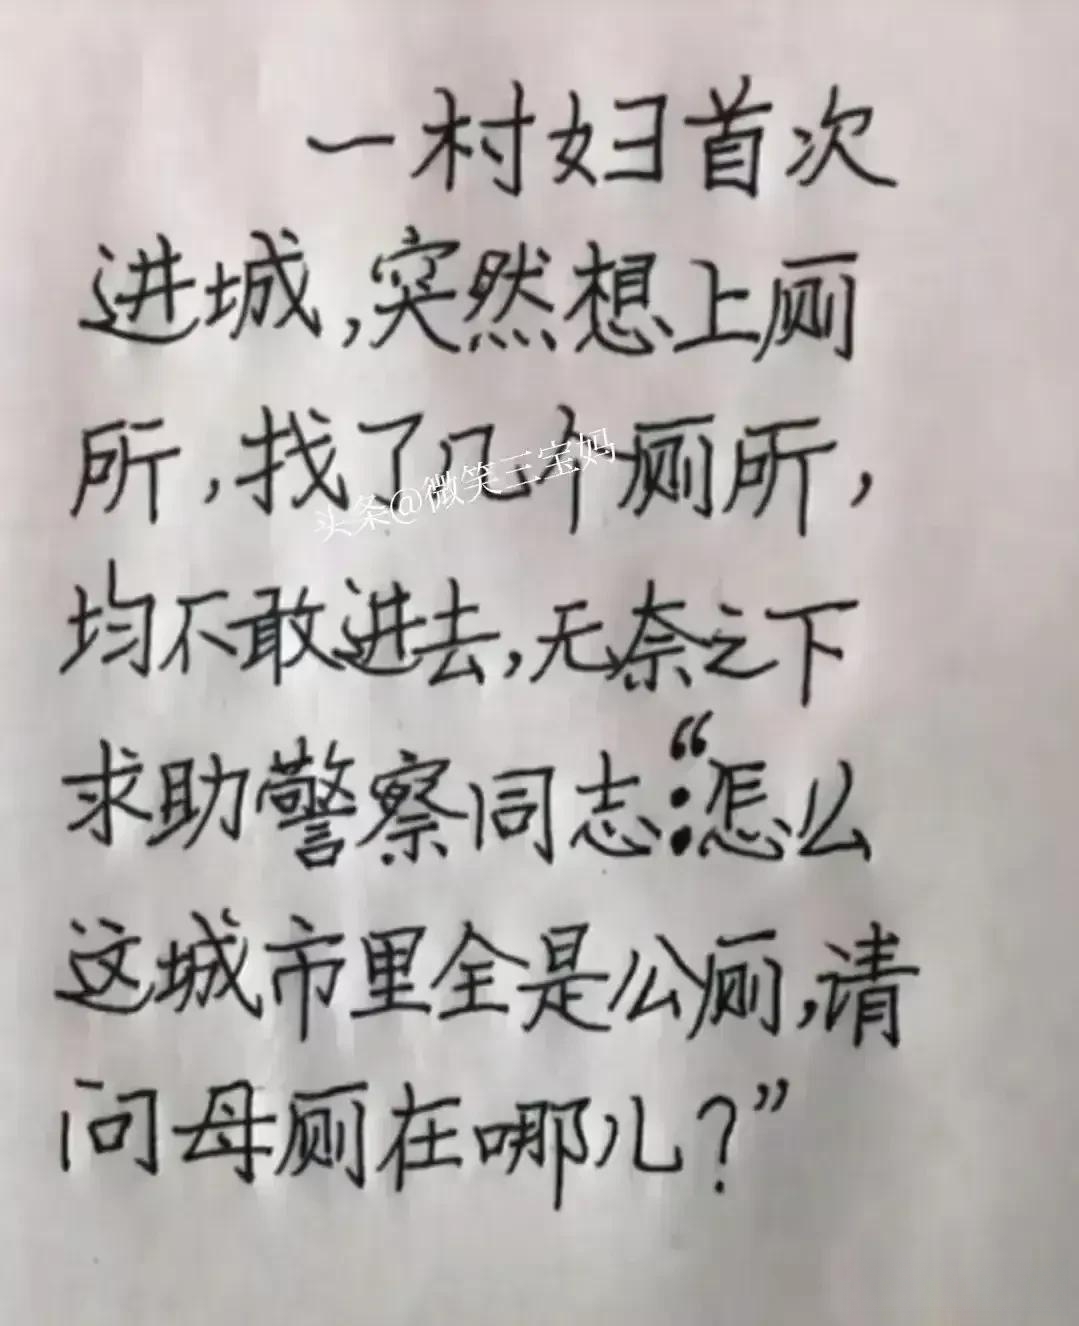 一村妇首次
进城,突然想上厕
所,找了几个厕所,
头条@微笑三宝妈
均不敢进去,无奈之下
求助警察同志:“怎么
这城市里全是公厕,请
问母厕在哪儿?”